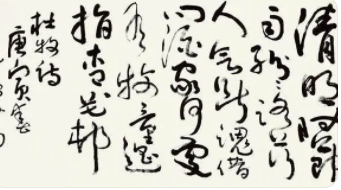 清明时节
雨纷纷路上行
人欲断魂借
问酒家何处
有牧童遥
指杏花村
杜牧诗
庚寅春